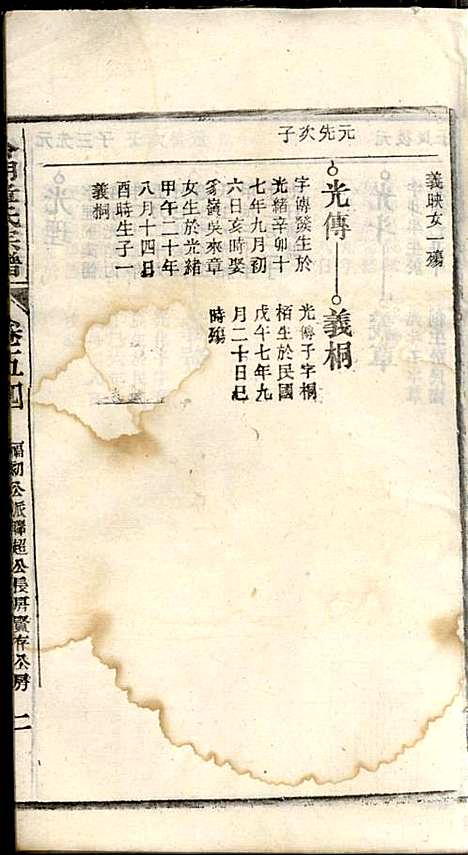 義映女一殤
元先次子
光傳
義桐
字傳發生於
光緒辛卯十
七年九月初
六日亥時娶
嶺吳來章
女生於光緒
甲午二十年
八月十四日
酉時生子一
義桐
光傳子字桐
栢生於民國
戊午七年九
月二十日巳
時殤
卷五
福初公派聯超公長房賢存公房
二